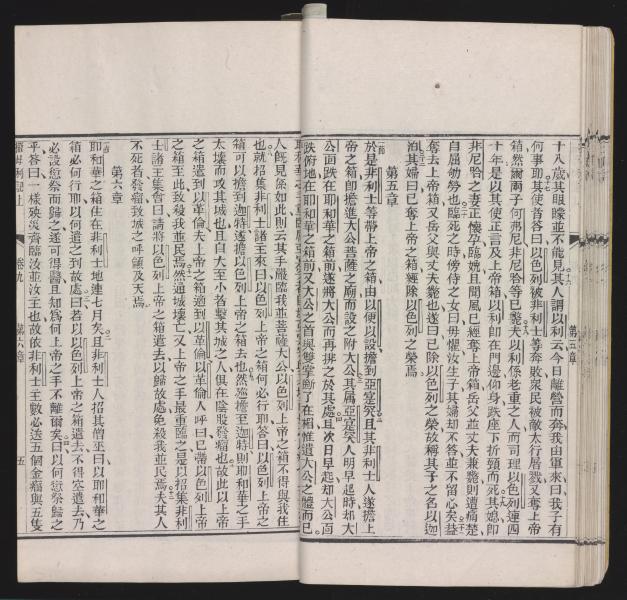 十八歲其眼矇並不能見其人謂以利云今日離營而奔我由軍來曰我子有
何事耶其使音答曰以色列被非利士等奔敗衆民被敵大行屠戮又奪上帝
箱然爾兩子何弗尼非尼哈等已斃夫以利係老重之人而司理以色列連四
十年是以其使正言及上帝箱以利卽在門邊仰身跌座下折頸而死其媳卽
非尼哈之妻正懷孕臨娩且聞風已經奪上帝箱岳父並丈夫兼斃則遭痛楚
自屈劬勞也臨死之時傍侍之女曰毋懼汝生子其婦却不答並不留心矣益
奪去上帝箱又岳父與丈夫斃已遂曰已除以色列之榮故稱其子之名以迦
泊其婦曰已奪上帝之箱經除以色列之榮焉
第五章
於是非利士等帶上帝之箱由以便以設擔到亞寔突且其非利士人遂擔上
帝之箱卽擔進大公菩薩之廟而設之附大公其屬亞寔突人明早起時却大
公面跌在耶和華之箱前遂將大公而再排之於其處且次日早起却大公面
跌俯地在耶和華之箱前又大公之首與雙掌斷了在楣惟遺大公之體而已
人旣見係如此則云其手嚴臨我並菩薩大公以色列上帝之箱不得與我住
也就招集非利士諸王來曰以色列上帝之箱何必行耶答曰以色列上帝之
箱可以擔到迦特遂擔以色列上帝之箱去也然旣擔至迦特則耶和華之手
太壞而攻其城也且自大至小者擊其城之人俱在陰股發瘤也故此以上帝
之箱遣到以革倫夫上帝之箱適到以革倫以革倫人呼曰已帶以色列上帝
之箱至此致殺我並民焉然通城壞亡又上帝之手最重臨之是以招集非利
士諸王集會曰請將以色列上帝之箱遣去以歸故處免殺我並民焉夫其人
不死者發瘤致城之呼韻及天焉
第六章
耶和華之箱住在非利士地連七月矣且非利士人招其僧巫曰以耶和華之
箱必何行耶以何遣之到故處曰若以以色列上帝之箱遣去不得空遣去乃
必設愆祭而歸之遂可得醫且知爲何上帝之手不離爾矣曰以何愆祭歸之
乎答曰一樣殃災齊臨汝並汝王也故依非利士王數必送五個金瘤與五隻
卷九
第六章
五